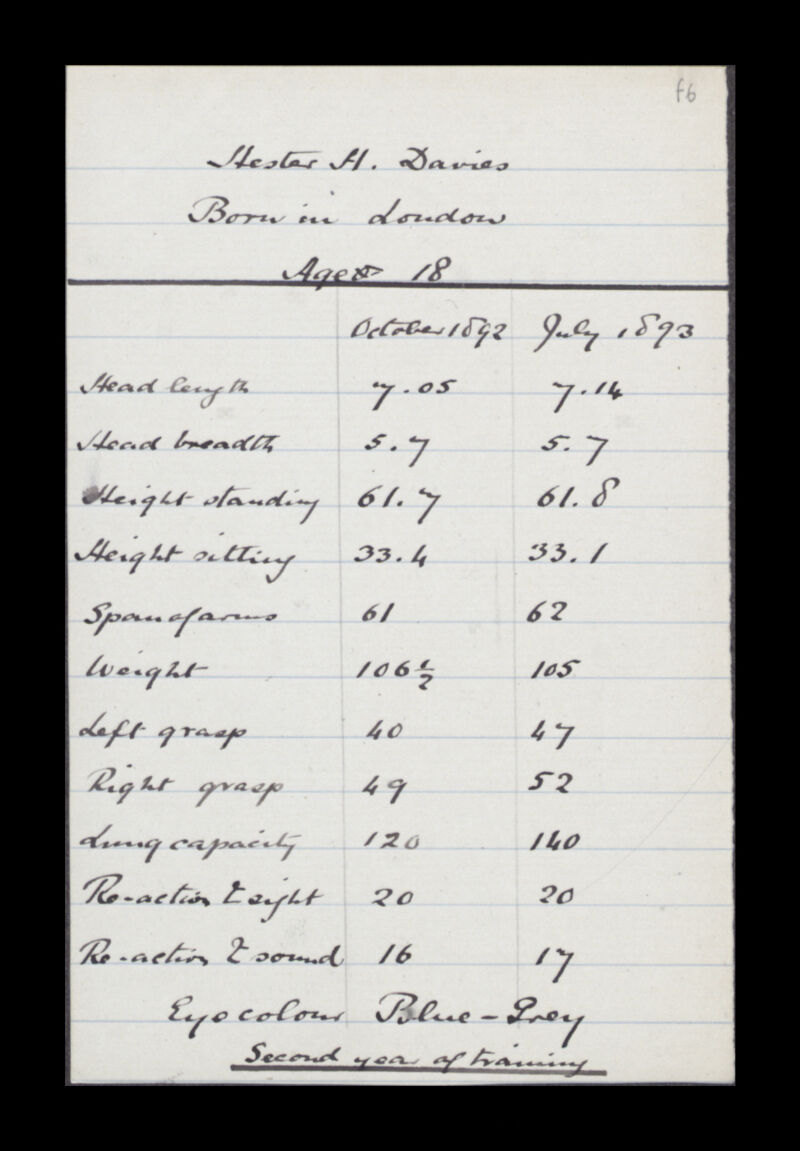 f6
Hester H. Davies
Born in London
Age 18
October 1892 July 1893
Head length 7.05 7.14
Head breadth 5.7 5.7
Height standing 61.7 61.8
Height sitting 33.4 33.1
Span of arms 61 62
Weight 106½ 105
Left grasp 40 47
Right grasp 49 52
Lung capacity 120 140
Re-action to sight 20 20
Re-action to sound 16 17
Eye colour Blue-Grey
Second year of training